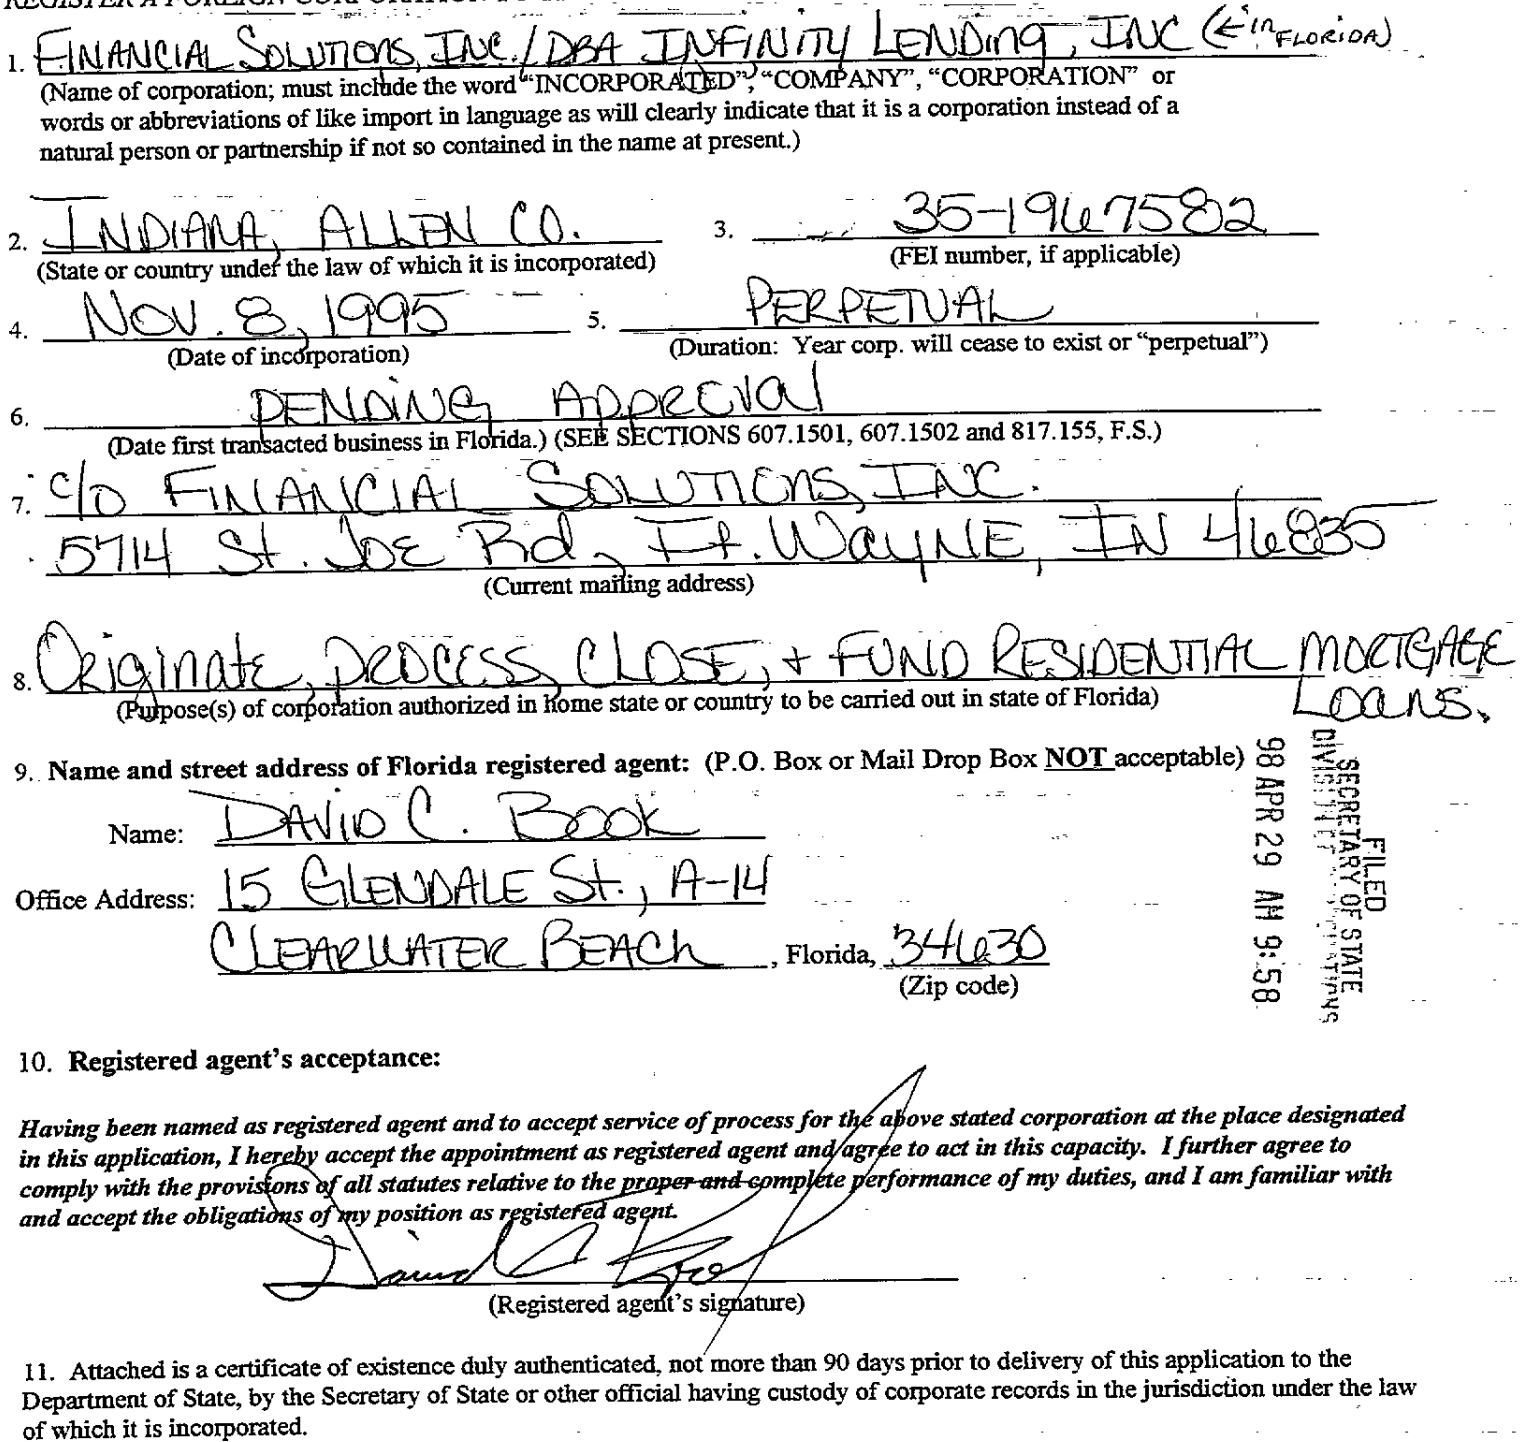 REGISTER A FOREIGN CORPORATION TO
1. FINANCIAL SOLUTIONS, INC./DBA INFINITY LENDING, INC (←in FLORIDA)
(Name of corporation; must include the word "INCORPORATED", "COMPANY", "CORPORATION" or
words or abbreviations of like import in language as will clearly indicate that it is a corporation instead of a
natural person or partnership if not so contained in the name at present.)
2. INDIANA, ALLEN CO. 3. 35-1967582
(State or country under the law of which it is incorporated) (FEI number, if applicable)
4. NOV. 8, 1995 5. PERPETUAL
(Date of incorporation) (Duration: Year corp. will cease to exist or "perpetual")
6. PENDING APPROVAL
(Date first transacted business in Florida.) (SEE SECTIONS 607.1501, 607.1502 and 817.155, F.S.)
7. c/o FINANCIAL SOLUTIONS, INC.
5714 St. JOE Rd, Ft. WAYNE, IN 46835
(Current mailing address)
8. Originate, PROCESS, CLOSE, + FUND RESIDENTIAL MORTGAGE
LOANS.
(Purpose(s) of corporation authorized in home state or country to be carried out in state of Florida)
9. Name and street address of Florida registered agent: (P.O. Box or Mail Drop Box NOT acceptable)
Name: DAVID C. BOOK
Office Address: 15 GLENDALE St., A-14
CLEARWATER BEACH, Florida, 34630
(Zip code)
FILED
SECRETARY OF STATE
98 APR 29 AM 9:58
10. Registered agent's acceptance:
Having been named as registered agent and to accept service of process for the above stated corporation at the place designated
in this application, I hereby accept the appointment as registered agent and agree to act in this capacity. I further agree to
comply with the provisions of all statutes relative to the proper and complete performance of my duties, and I am familiar with
and accept the obligations of my position as registered agent.
(Registered agent's signature)
11. Attached is a certificate of existence duly authenticated, not more than 90 days prior to delivery of this application to the
Department of State, by the Secretary of State or other official having custody of corporate records in the jurisdiction under the law
of which it is incorporated.